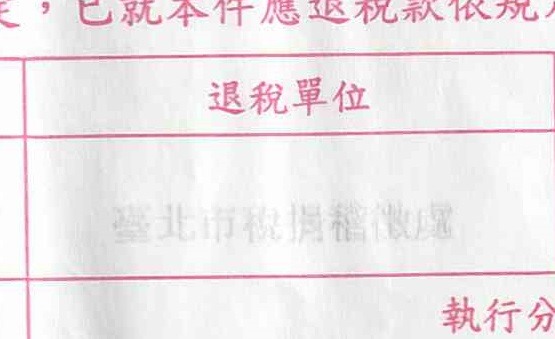 ，已就本件應退稅款依規
退稅單位
臺北市稅捐稽徵處
執行分